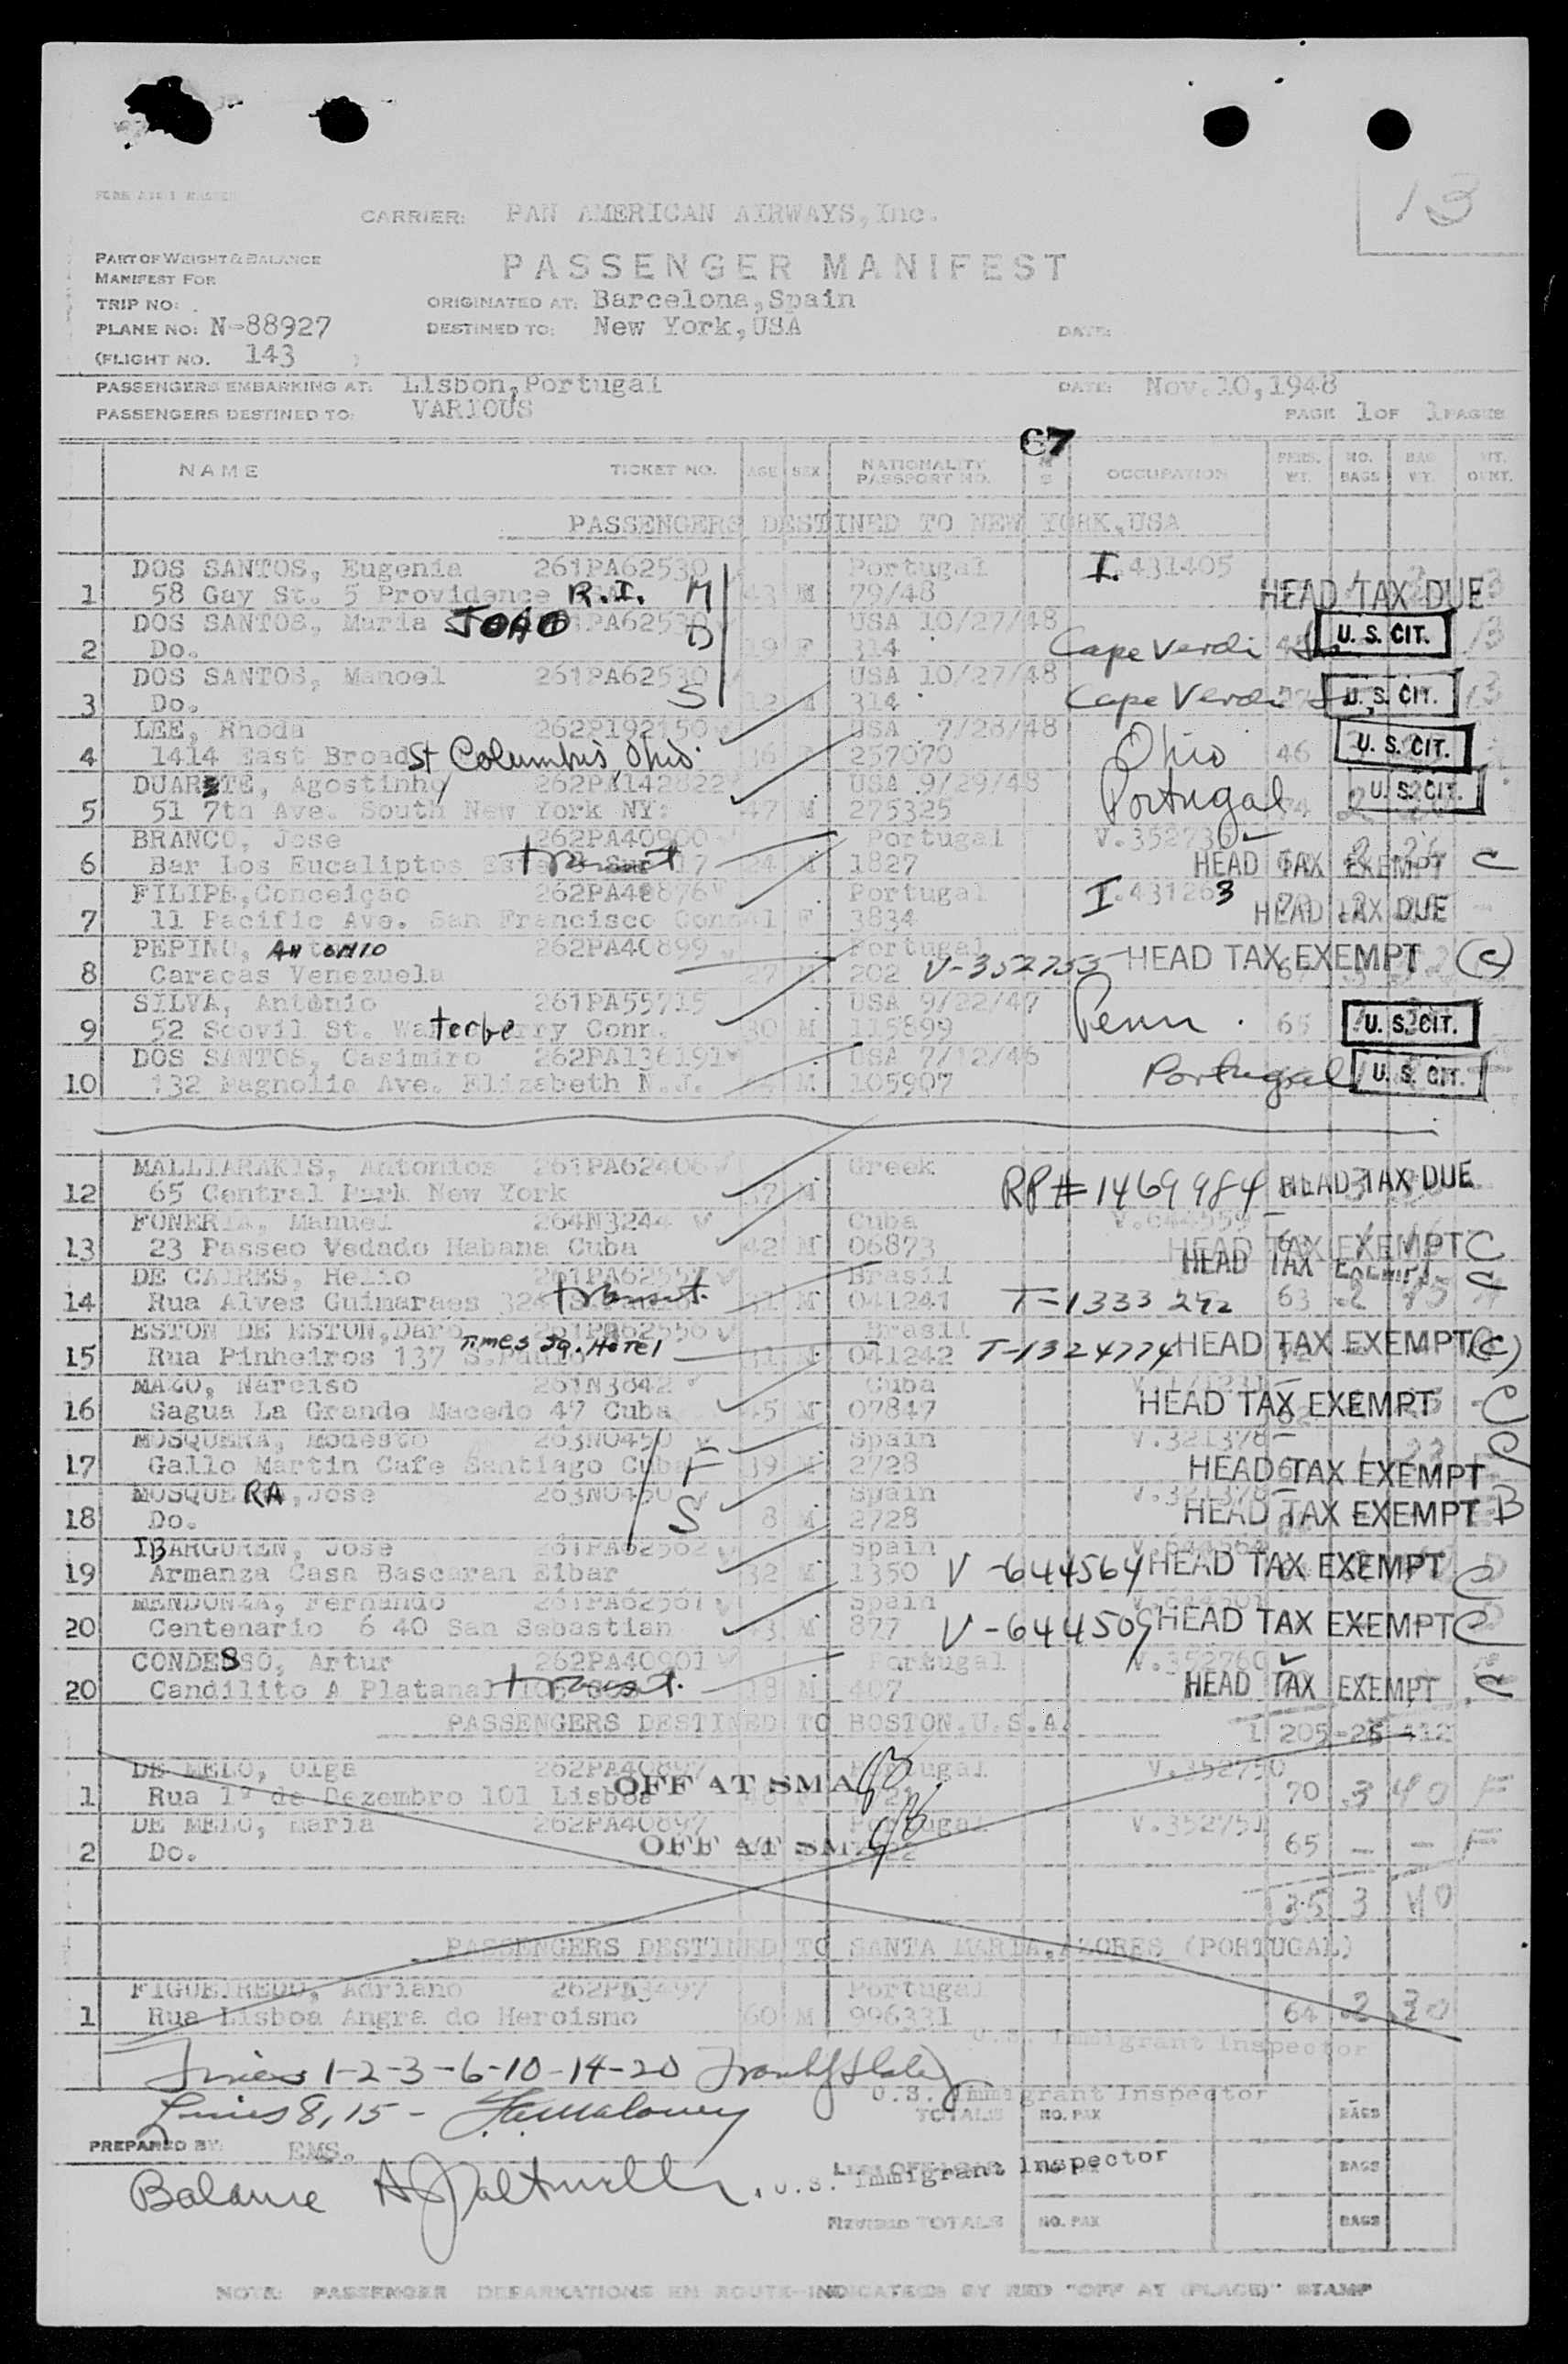 13
CARRIER: PAN AMERICAN AIRWAYS, Inc.
PART OF WEIGHT & BALANCE
MANIFEST FOR
PASSENGER MANIFEST
TRIP NO:
ORIGINATED AT: Barcelona, Spain
PLANE NO: N-88927
DESTINED TO: New York, USA
DATE:
(FLIGHT NO. 143 )
PASSENGERS EMBARKING AT: Lisbon, Portugal DATE: Nov. 10, 1948
PASSENGERS DESTINED TO: VARIOUS PAGE 1 OF 1 PAGES
67
NAME TICKET NO. AGE SEX NATIONALITY PASSPORT NO. OCCUPATION NO. BAGS BAG WT.
PASSENGERS DESTINED TO NEW YORK, USA
DOS SANTOS, Eugenia 261PA62530 Portugal I.431405
1 58 Gay St. 5 Providence R.I. M 43 M 79/48 HEAD TAX DUE
DOS SANTOS, Maria JOAO 261PA62530 USA 10/27/48
2 Do. D 19 F 314 Cape Verdi U. S. CIT. 13
DOS SANTOS, Manoel 261PA62530 USA 10/27/48
3 Do. S 12 M 314 Cape Verdi U. S. CIT. 13
LEE, Rhoda 262P192150 USA 7/28/48
4 1414 East Broad St Columbus Ohio. 257070 Ohio 46 U. S. CIT.
DUARTE, Agostinho 262PA142822 USA 9/29/48
5 51 7th Ave. South New York NY: 47 M 275325 Portugal 74 2 U. S. CIT.
BRANCO, Jose 262PA40900 Portugal V.352736
6 Bar Los Eucaliptos transit 17 24 M 1827 HEAD TAX EXEMPT C
FILIPE, Conceiçao 262PA40876 Portugal I.431263
7 11 Pacific Ave. San Francisco F 3834 HEAD TAX DUE
PEPINO, Antonio 262PA40899 Portugal
8 Caracas Venezuela 27 M 202 V-352755 HEAD TAX EXEMPT (C)
SILVA, António 261PA55715 USA 9/22/47
9 52 Scovil St. Waterbury Conn. 30 M 115899 Penn. 65 U. S. CIT.
DOS SANTOS, Casimiro 262PA136191 USA 7/12/46
10 132 Magnolia Ave. Elizabeth N.J. M 105907 Portugal U. S. CIT.
MALLIARAKIS, Antonios 261PA62406 Greek
12 65 Central Park New York 37 M RP# 1469984 HEAD TAX DUE
FONERIA, Manuel 264N3244 Cuba V.644559
13 23 Passeo Vedado Habana Cuba 42 M 06873 HEAD TAX EXEMPT C
HEAD TAX EXEMPT
DE CAIRES, Helio 261PA62557 Brasil
14 Rua Alves Guimaraes 324 transit. 31 M 041241 T-1333292 63 2 C
ESTON DE ESTON, Daro 261PA62556 Brasil
15 Rua Pinheiros 137 S. Paulo Times Sq. Hotel 31 M 041242 T-1324774 HEAD TAX EXEMPT (C)
MAZO, Narciso 261N3842 Cuba
16 Sagua La Grande Macedo 47 Cuba 45 M 07847 HEAD TAX EXEMPT C
MOSQUERA, Modesto 263N0450 Spain V.321378
17 Gallo Martin Cafe Santiago Cuba F 39 M 2728 HEAD TAX EXEMPT C
MOSQUERA, Jose 263N0450 Spain V.321378
18 Do. S 8 M 2728 HEAD TAX EXEMPT B
IBARGUREN, Jose 261PA62562 Spain V.644564
19 Armanza Casa Bascaran Eibar 32 M 1350 V-644564 HEAD TAX EXEMPT C
MENDONZA, Fernando 261PA62561 Spain
20 Centenario 6 40 San Sebastian M 877 V-644509 HEAD TAX EXEMPT C
CONDESSO, Artur 262PA40901 Portugal V.352760
20 Candilito A Platanal transit. 18 M 407 HEAD TAX EXEMPT C
PASSENGERS DESTINED TO BOSTON. U.S.A. 1 205 - 412
DE MELO, Olga 262PA40897 Portugal V.352750
1 Rua 1º de Dezembro 101 Lisboa OFF AT SMA 70 3 40 F
DE MELO, Maria 262PA40897 Portugal V.352751
2 Do. OFF AT SMA 65 - - F
135 3 40
PASSENGERS DESTINED TO SANTA MARIA, AZORES (PORTUGAL)
FIGUEIREDO, Adriano 262PA3497 Portugal
1 Rua Lisboa Angra do Heroismo 60 M 996331 64 2 30
U.S. Immigrant Inspector
Lines 1-2-3-6-10-14-20
U.S. Immigrant Inspector
Lines 8, 15 -
TOTALS NO. PAX BAGS
PREPARED BY: EMS.
Balance
U.S. Immigrant Inspector BAGS
REVISED TOTALS NO. PAX BAGS
NOTE: PASSENGER DEBARKATIONS EN ROUTE INDICATED BY RED "OFF AT (PLACE)" STAMP